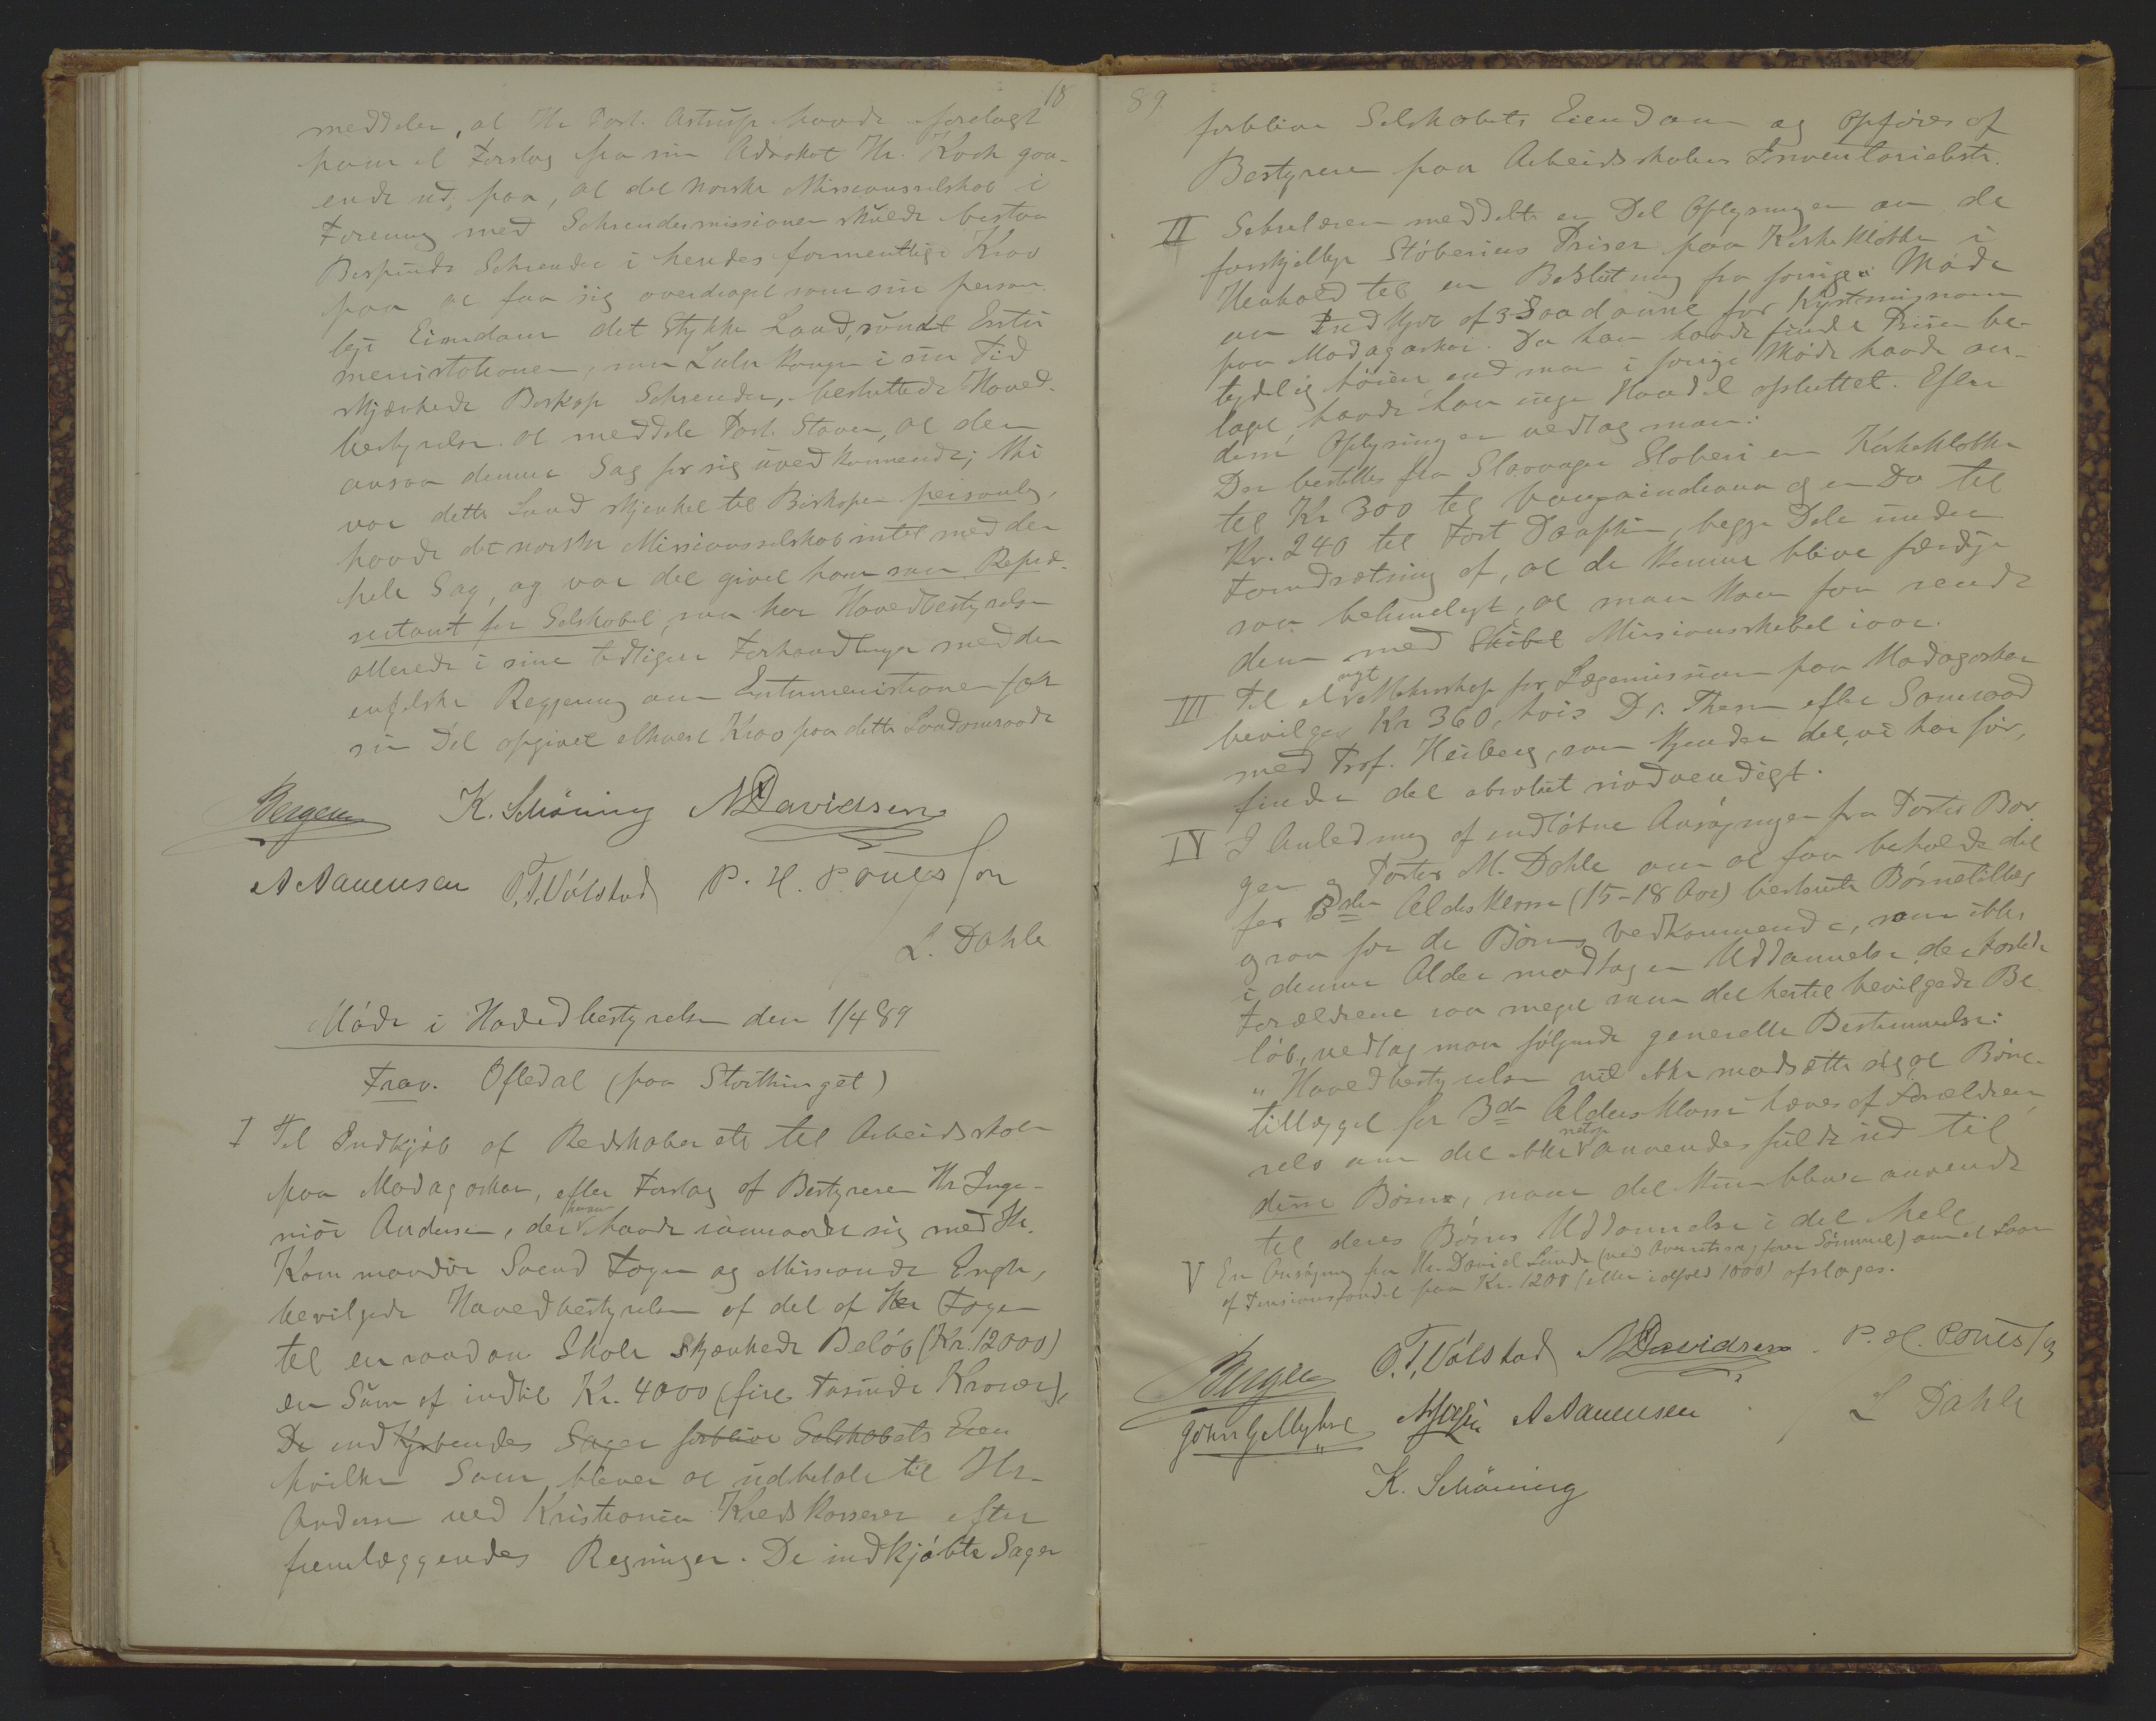 18
meddeler, at Hr Past. Astrup havde forelagt
ham et Forslag fra sin Advokat Hr. Koch gaa-
ende ud paa, at det norske Missionsselskab i
Forening med Schreudermissionen skulde bistaa
Bispinde Schreuder i hendes formentlige Krav
paa at faa sig overdraget som sin person-
lige Eiendom det Stykke Land, rundt Entu
menistationen, som Zulu kongen i sin Tid
skjænkede Biskop Schreuder, besluttede Hoved-
bestyrelsen at meddele Past. Stavem, at den
ansaa denne Sag for sig uvedkommende; thi
var dette Land skjenket til Biskopen personlig,
havde det norske Missionsselskab intet med den
hele Sag, og var det givet ham som Repræ-
sentant for Selskabet, saa har Hovedbestyrelsen
allerede i sine tidligere Forhandlinger med den
engelske Regjering om Entumenistationen for
sin Del opgivet ethvert Krav paa dette Landomraade
Bergem K. Schöning N Davidsen
A Aanensen O. T. Völstad P. H. Poulsson
L. Dahle
Möde i Hovedbestyrelsen den 1/4 89
Frav. Oftedal (paa Storthinget)
I Til Indkjöb af Redskaber etc til Arbeidsskolen
paa Madagaskar, efter Forslag af Bestyreren Hr. Inge-
niör Andersen, der havde samraadet sig med Hr.
Kommandör Svend Foyn og Missionær Engh,
bevilgede Hovedbestyrelsen af det af Hr Foyn
til en saadan Skole skjænkede Belöb (Kr. 12000)
en Sum af indtil Kr. 4000 (fire Tusinde Kroner),
De indkjöbendes Sager forblive Selskabets Eien
hvilken Sum bliver at udbetale til Hr.
Andersen ved Kristiania Kredskasserer efter
fremlæggendes Regninger. De indkjöbte Sager
89
forblive Selskabets Eiendom og opføres af
Bestyreren paa Arbeidsskolens Inventarieliste.
II Sekretæren meddelte en Del Oplysninger om de
forskjellige Stöberiers Priser paa Kirkeklokker i
Henhold til en Beslutning fra forrige Möde
om Indkjöb af 3 Saadanne for Kystmissionen
paa Madagaskar. Da han havde fundet Prisen be-
tydelig höiere end man i forrige Möde havde an-
taget, havde han ingen Handel afsluttet. Efter
disse Oplysninger vedtog man:
Der bestilles fra Stavanger Stöberi en Kirkeklokke
til Kr 300 til Vangaindrano og en Do til
Kr. 240 til Fort Dauphin, begge Dele under
Forudsætning af, at de kunne blive færdige
saa betimeligt, at man kan faa sende
dem med Skibet Missionsskibet iaar.
III Til et nyt Mikroskop for Lægemissionen paa Madagaskar
bevilges Kr 360, hvis Dr. Thesen efter Samraad
med Prof. Heiberg, som kjender det, vi har för,
finder det absolut nödvendigt.
IV I Anledning af indlöbne Ansögninger fra Pastor Bor
gen og Pastor M. Dahle om at faa beholde det
for 3die Aldersklasse (15-18 Aar) bestemte Börnetillæg
ogsaa for de Börns Vedkommende, som ikke
i denne Alder modtager Uddannelse, der koster
Forældrene saa meget som det hertil bevilgede Be
löb, vedtog man fölgende generelle Bestemmelse:
" Hovedbestyrelsen vil ikke modsætte sig, at Börne-
tillægget for 3die Aldersklasse hæves af Forældrene,
selv om det ikke netop anvendes fuldt ud til
disse Börn, naar det kun bliver anvendt
til deres Börns Uddannelse i det hele
V En Ansögning fra Hr. David Lund (ved Overretssagförer Sömme) om et Laan
af Pensionsfondet paa Kr. 1200 (eller i alfald 1000) afslaaes.
Bergem O. T. Völstad N Davidsen P. H. Poulsson
John G Myhre A Aanensen L Dahle
K. Schöning